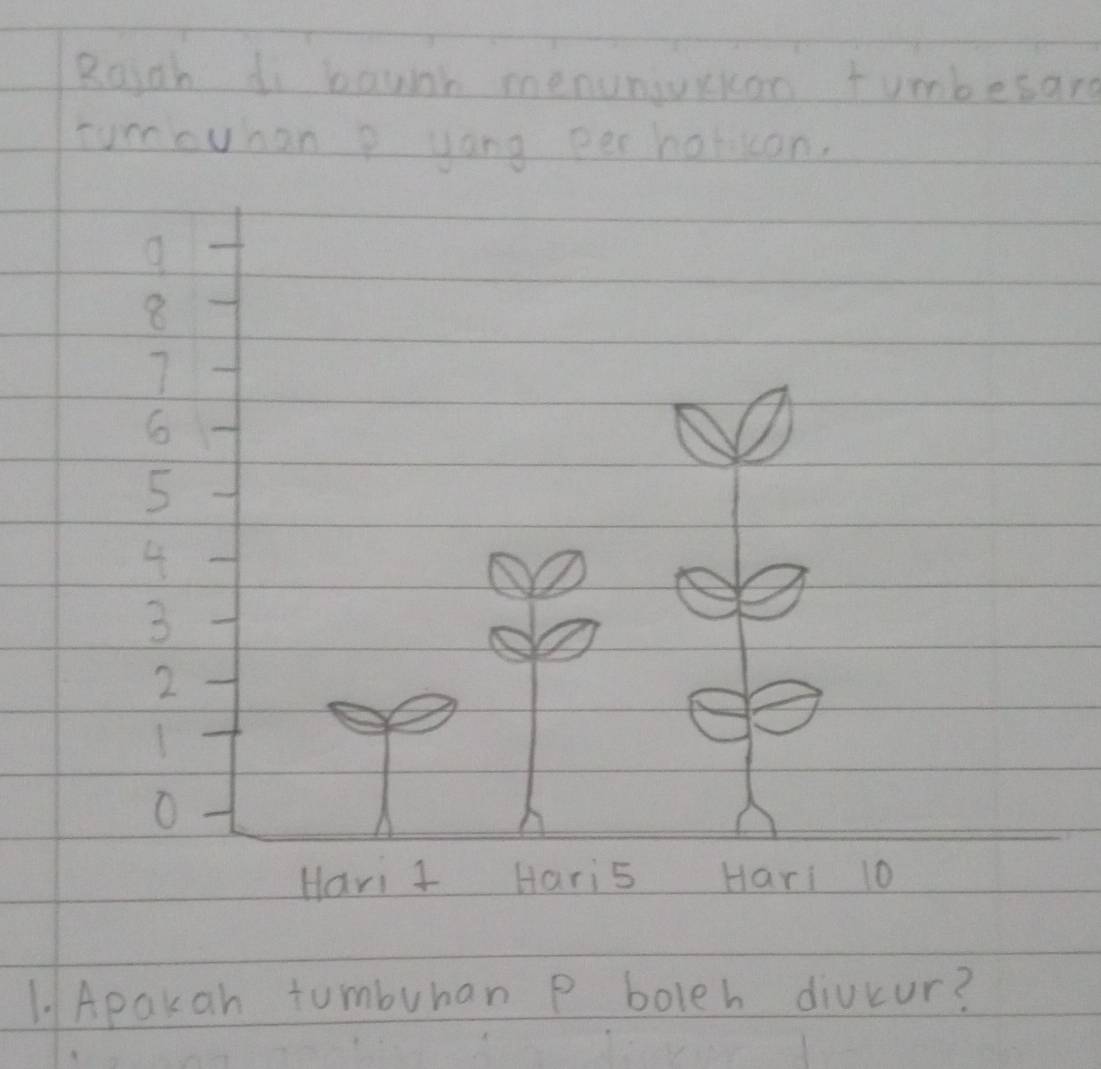 Rajah di bawah menunjukkan tumbesara
tumbuhan P yang per hatikan.
9
8
7
6
5
4
3
2
1
0
Hari 1 Hari 5 Hari 10
1. Apakah tumbuhan P boleh diukur?